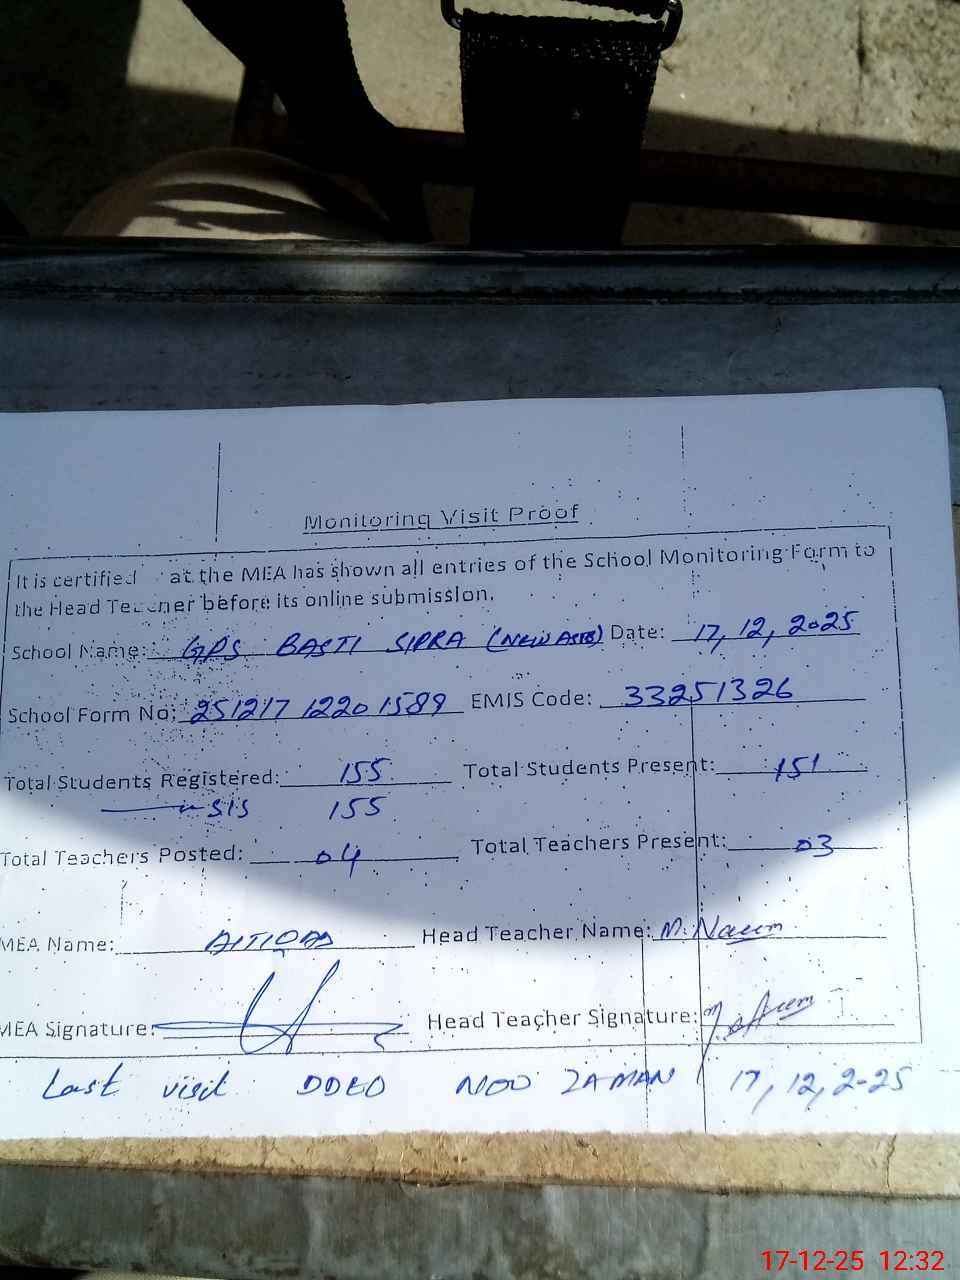 Monitoring Visit Proof
It is certified at the MEA has shown all entries of the School Monitoring Form to
the Head Teacher before its online submission.
School Name: GPS BASTI SIPRA Date: 17, 12, 2025
School Form No: 251217 1220 1589 EMIS Code: 33251326
Total Students Registered: 155 Total Students Present: 151
SIS 155
Total Teachers Posted: 04 Total Teachers Present: 03
MEA Name: Head Teacher Name: M. Naeem
MEA Signature: Head Teacher Signature:
Last visit DDEO ZAMAN 17, 12, 2-25
17-12-25 12:32